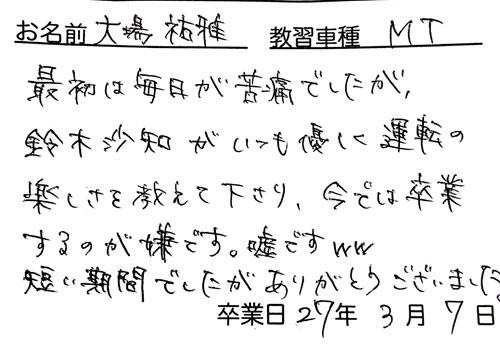 お名前 大場 祐雅 教習車種 MT
最初は毎日が苦痛でしたが、
鈴木沙知がいつも優しく運転の
楽しさを教えて下さり、今では卒業
するのが嫌です。嘘ですww
短い期間でしたがありがとうございました。
卒業日 27年 3月 7日